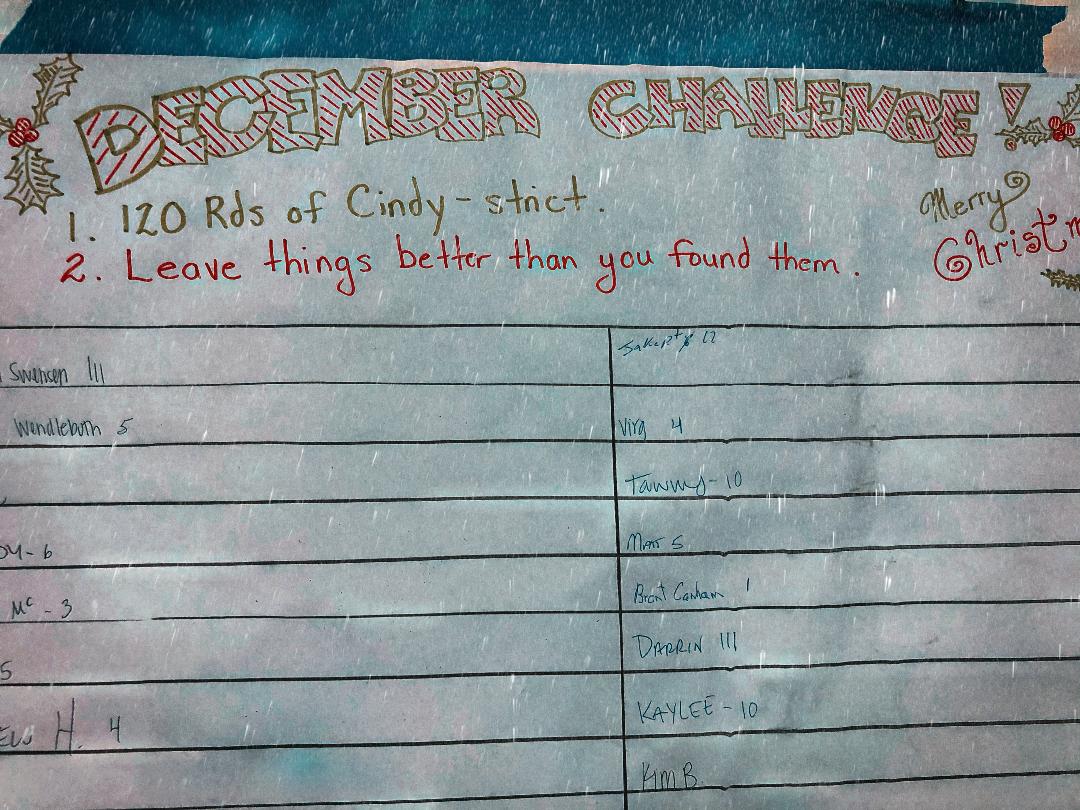 DECEMBER CHALLENGE!
1. 120 Rds of Cindy-strict.
2. Leave things better than you found them.
Merry
Christm
Swensen III
12
Wendleboth 5
Virg 4
Tammy-10
DY-6
Matt 5
Mc - 3
Brent Canham 1
DARRIN III
5
KAYLEE - 10
H. 4
Kim B.